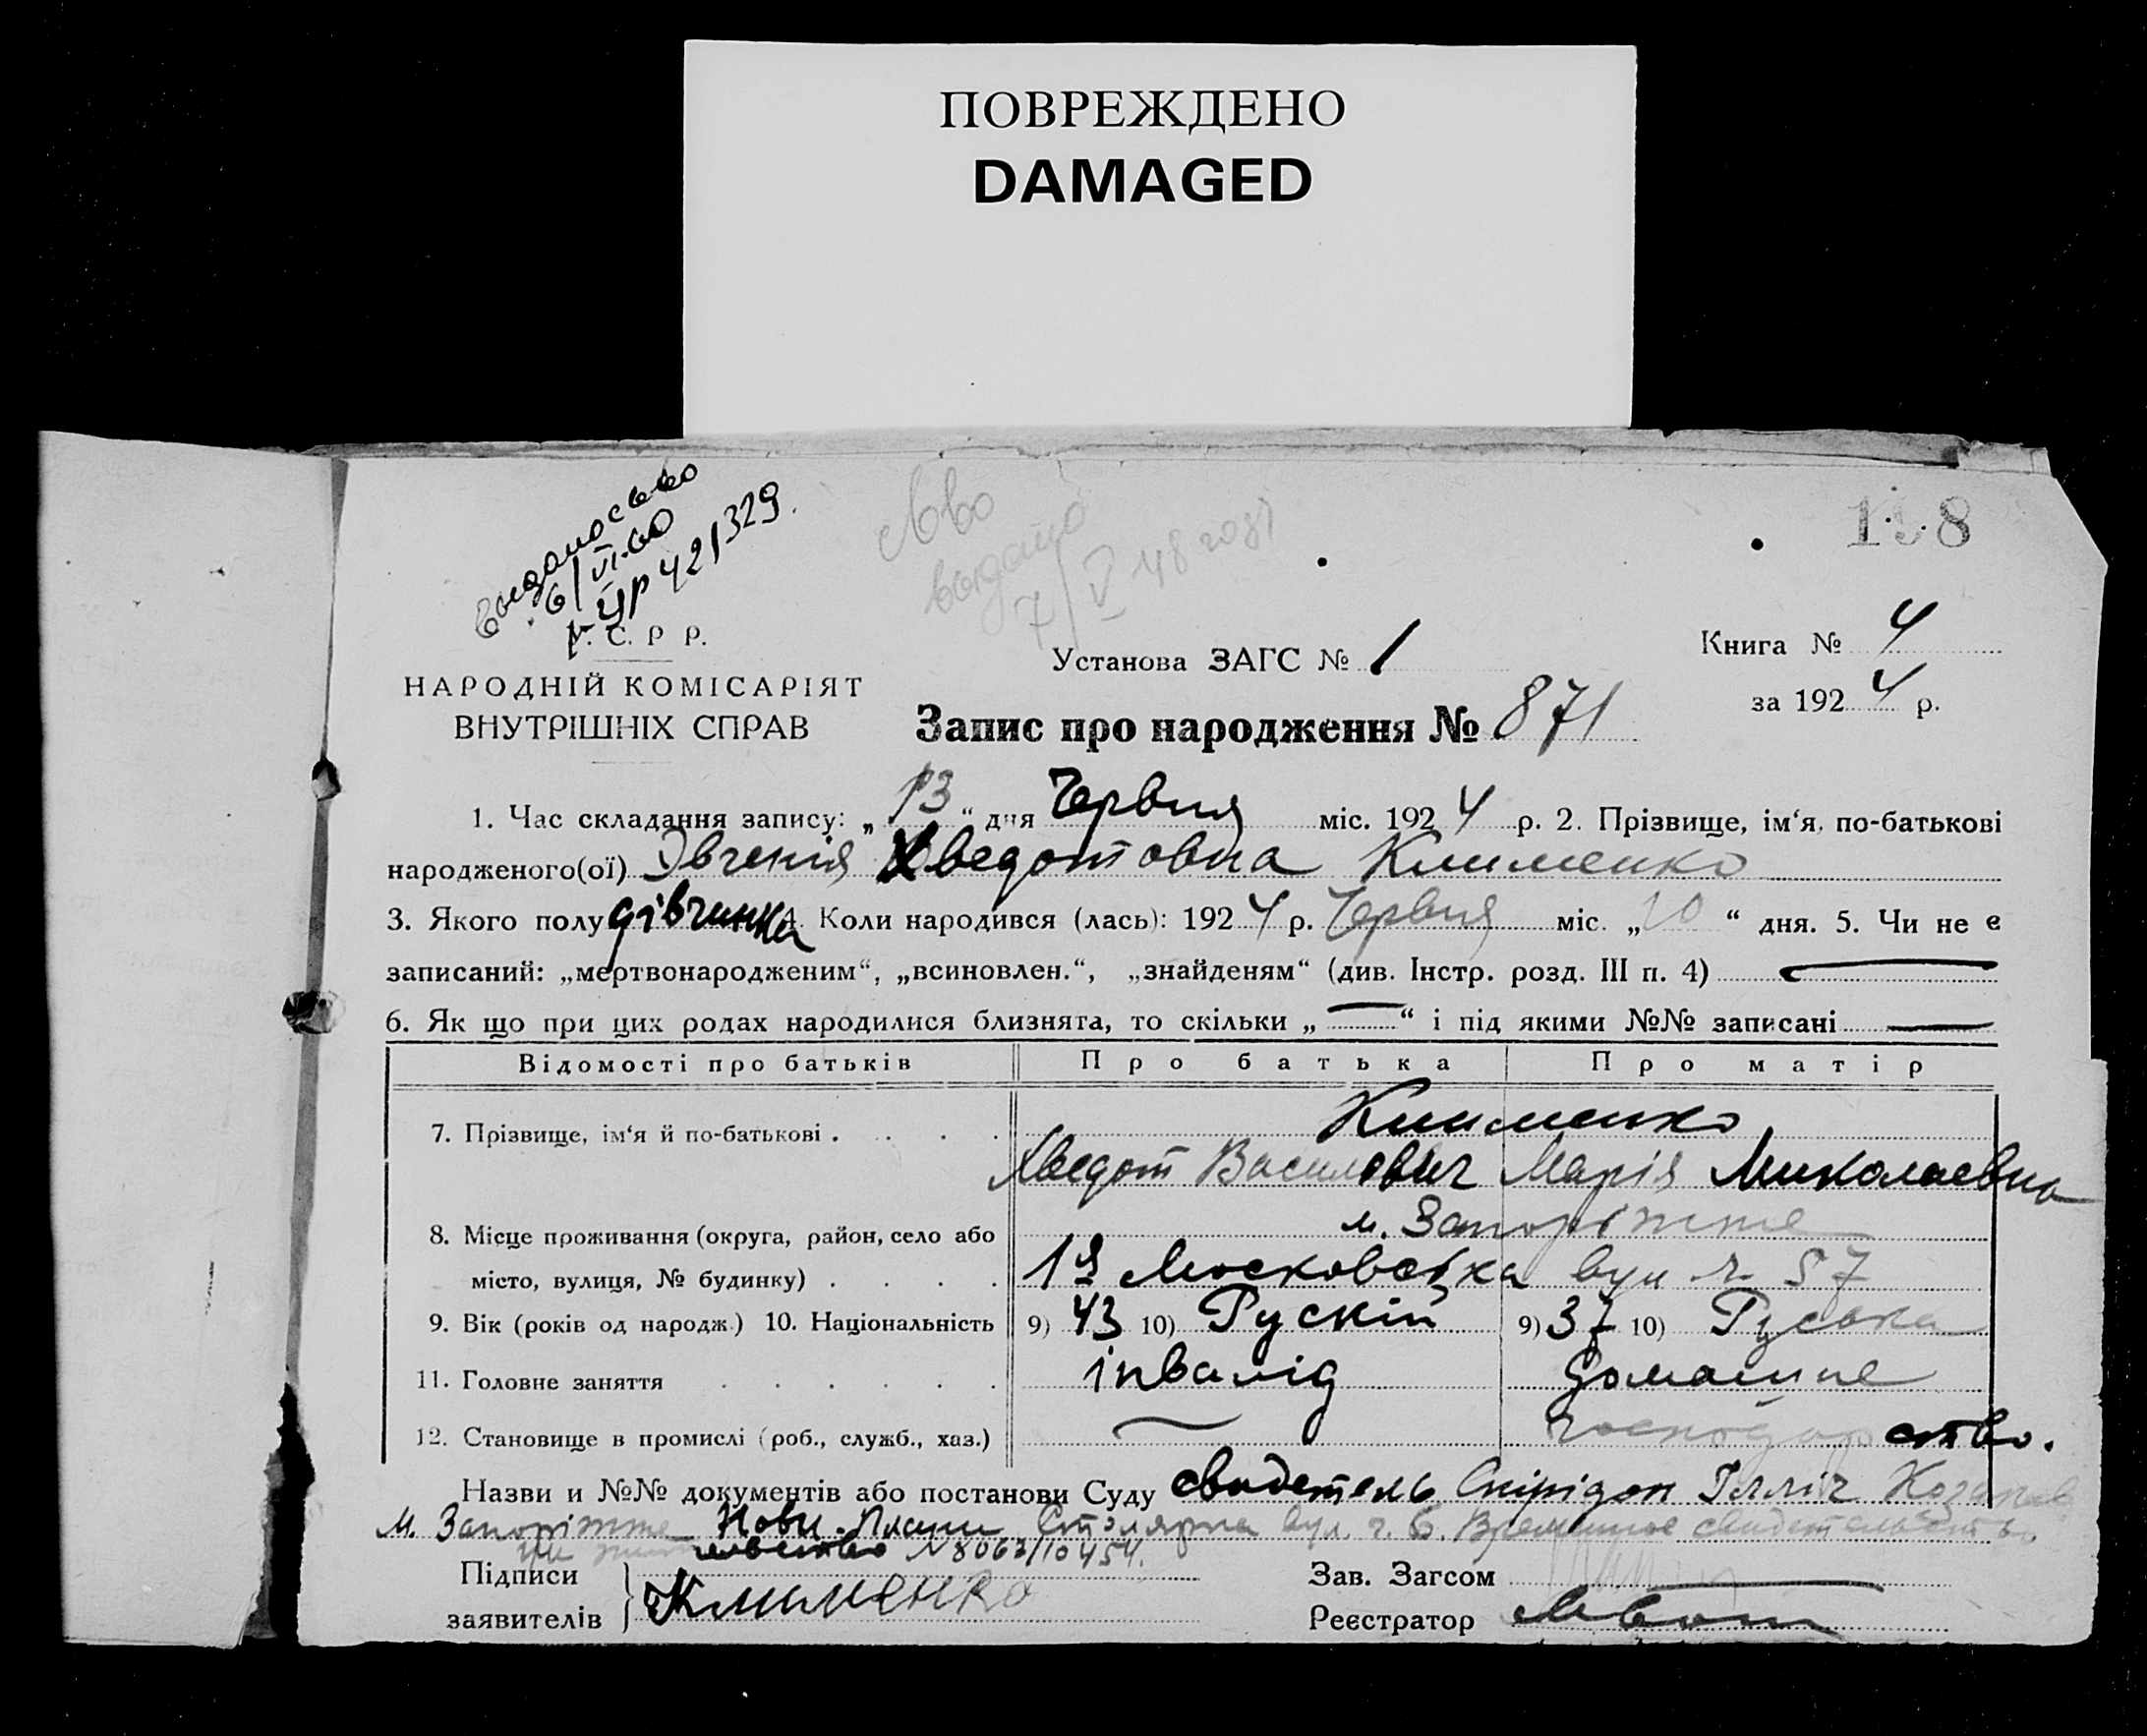 ПОВРЕЖДЕНО
DAMAGED
выдано св во
6/VI-60
УР 421329.
выдано
7/V 48 года
У. С. Р Р.
НАРОДНІЙ КОМІСАРІЯТ
ВНУТРІШНІХ СПРАВ
Установа ЗАГС № 1
Запис про народження № 871
Книга № 4
за 192 4 р.
1. Час складання запису: „ 13 “ дня Червня міс. 192 4 р. 2. Прізвище, ім‘я, по-батькові
народженого(ої) Євгенія Хведотовна Клименко
3. Якого полу дівчинка 4. Коли народився (лась): 192 4 р. Червня міс. „ 10 “ дня. 5. Чи не є
записаний: „мертвонародженим“, „всиновлен.“, „знайденям“ (див. Інстр. розд. III п. 4) —
6. Як що при цих родах народилися близнята, то скільки „ — “ і під якими №№ записані —
Відомості про батьків Про батька Про матір
7. Прізвище, ім‘я й по-батькові . . . . Клименко
Хведот Василович Марія Миколаевна
8. Місце проживання (округа, район, село або м. Запоріжже
місто, вулиця, № будинку) . . . . 1я Московська вул ч. 57
9. Вік (років од народж.) 10. Національність 9) 43 10) Рускій 9) 37 10) Руська
11. Головне заняття . . . . . . інвалід домашне
12. Становище в промислі (роб., служб., хаз.) — господарство.
Назви и №№ документів або постанови Суду свидетель Спірідон Ілліч
м. Запоріжже Нови-Плани Столярна вул. ч. 6. Временное свидетельство
N 8063/10454.
Підписи
заявителів Клименко
Зав. Загсом
Реєстратор